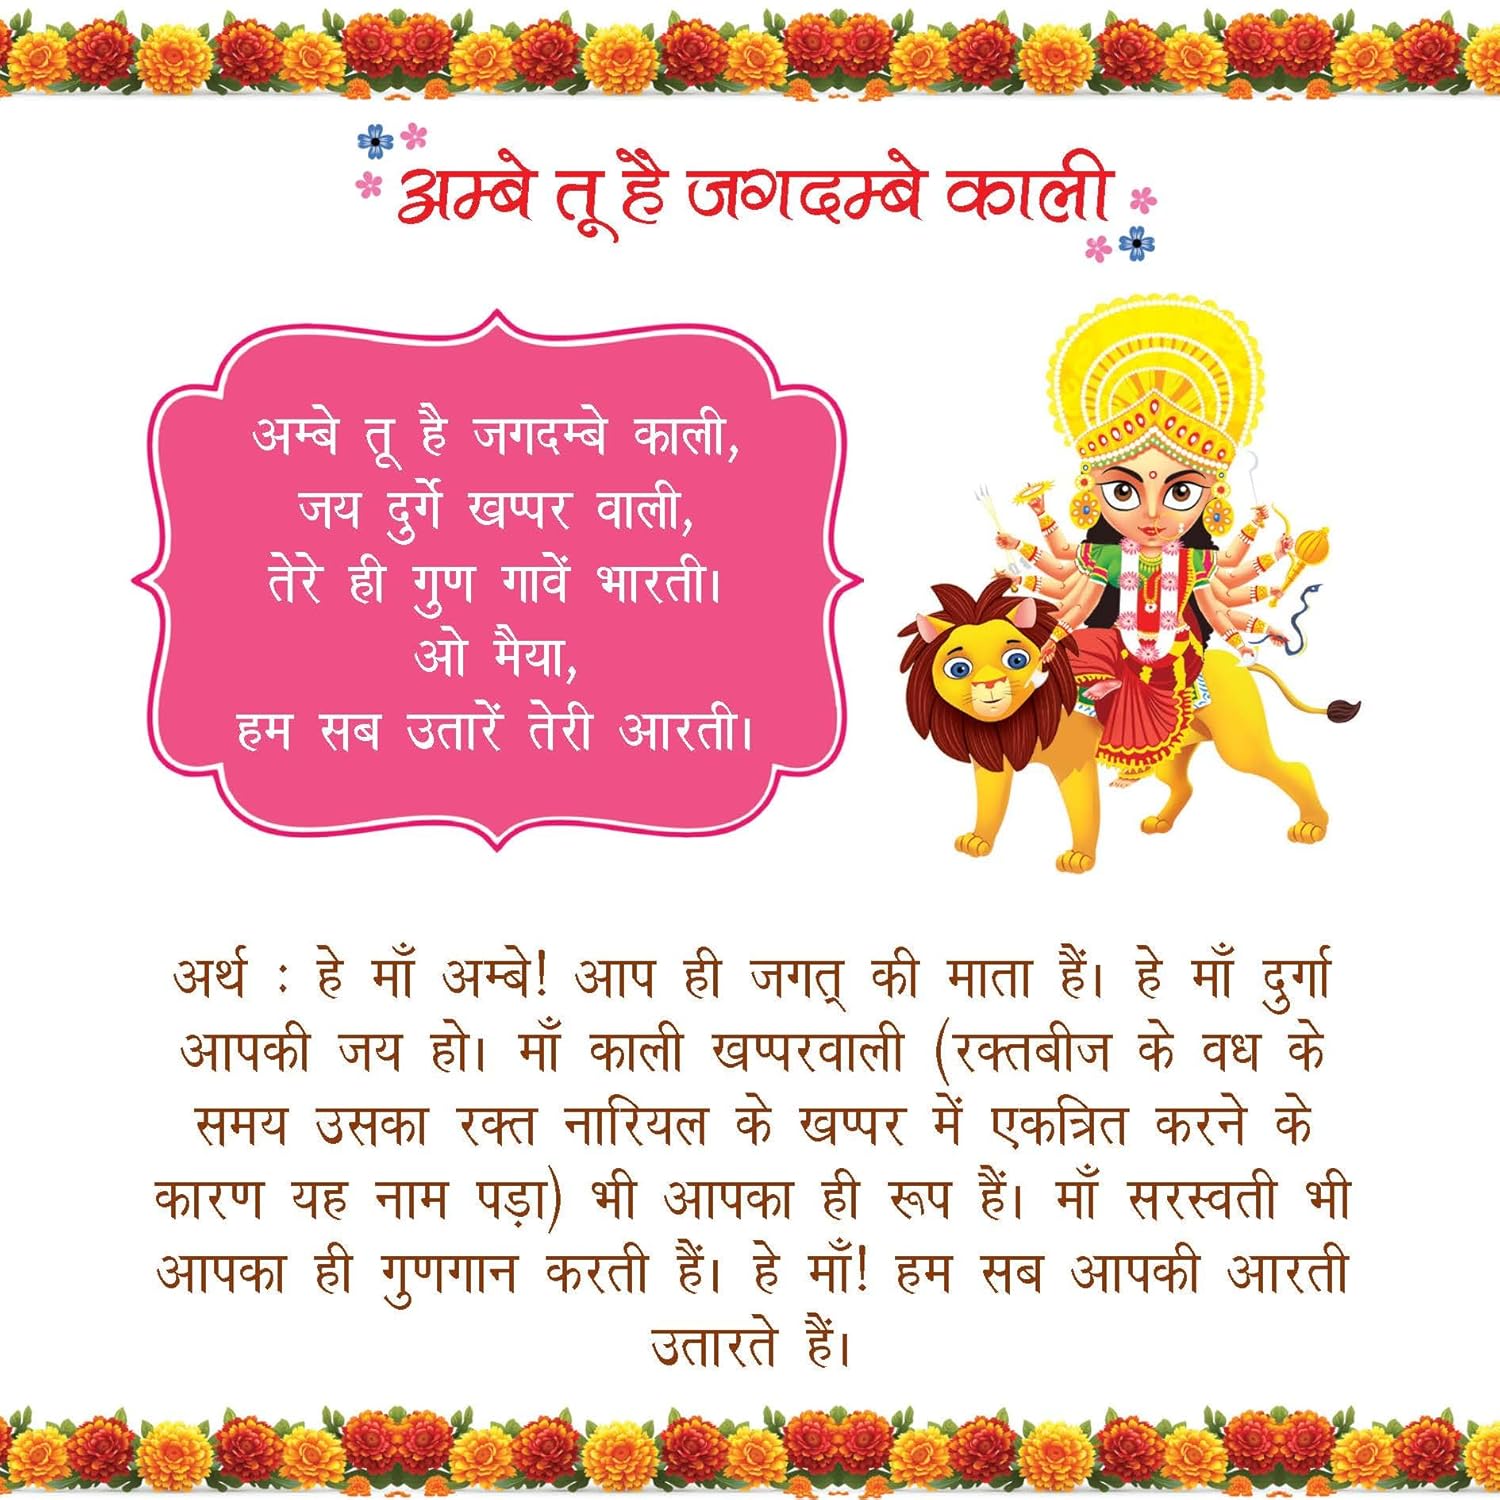 अम्बे तू है जगदम्बे काली
अम्बे तू है जगदम्बे काली,
जय दुर्गे खप्पर वाली,
तेरे ही गुण गावें भारती।
ओ मैया,
हम सब उतारें तेरी आरती।
अर्थ : हे माँ अम्बे! आप ही जगत् की माता हैं। हे माँ दुर्गा
आपकी जय हो। माँ काली खप्परवाली (रक्तबीज के वध के
समय उसका रक्त नारियल के खप्पर में एकत्रित करने के
कारण यह नाम पड़ा) भी आपका ही रूप हैं। माँ सरस्वती भी
आपका ही गुणगान करती हैं। हे माँ! हम सब आपकी आरती
उतारते हैं।